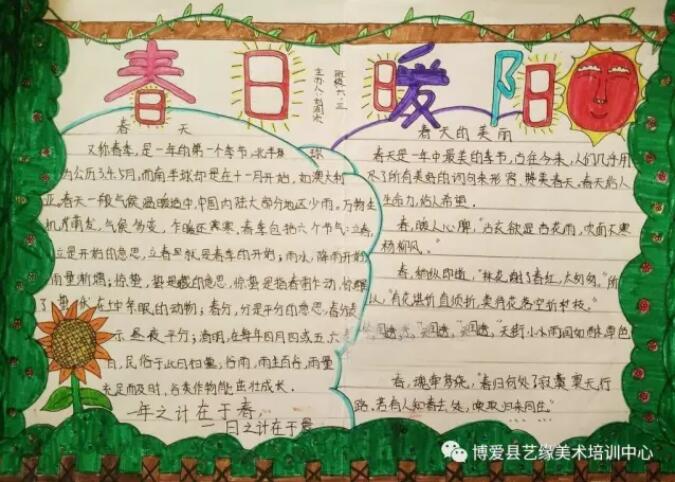 春日暖阳
班级:六.三
主办人:
春天
又称春季,是一年的第一个季节,北半球
公历3年5月,而南半球却是在十一月开始,如澳大利
亚。春天一般气候温暖适中,中国内陆大部分地区少雨。万物生
机萌发,气候多变,乍暖还寒。春季包括六个节气:立春,
立是开始的意思,立春是就是春季的开始;雨水,降雨开始
雨量渐增;惊蛰,蛰是藏的意思,惊蛰是指春雷乍动,惊醒
了蛰伏在土中冬眠的动物;春分,分是平分的意思,春分表
示昼夜平分;清明,在每年四月四或五
日,民俗于此日扫墓;谷雨,雨生百谷,雨量
充足而及时,谷类作物能茁壮成长。
一年之计在于春,
一日之计在于晨
春天的美丽
春天是一年中最美的季节,古往今来,人们几乎用
尽了所有美好的词句来形容,赞美春天,春天给人
生命力,给人希望。
春,暖人心脾,"沾衣欲湿杏花雨,吹面不寒
杨柳风。"
春,"林花谢了春红,太匆匆。"所
以,"有花堪折直须折,莫待花落空折枝。"
"天街小雨润如酥,草色
春,"春归何处?寂寞无行
路。若有人知春去处,唤取归来同住。"
博爱县艺缘美术培训中心